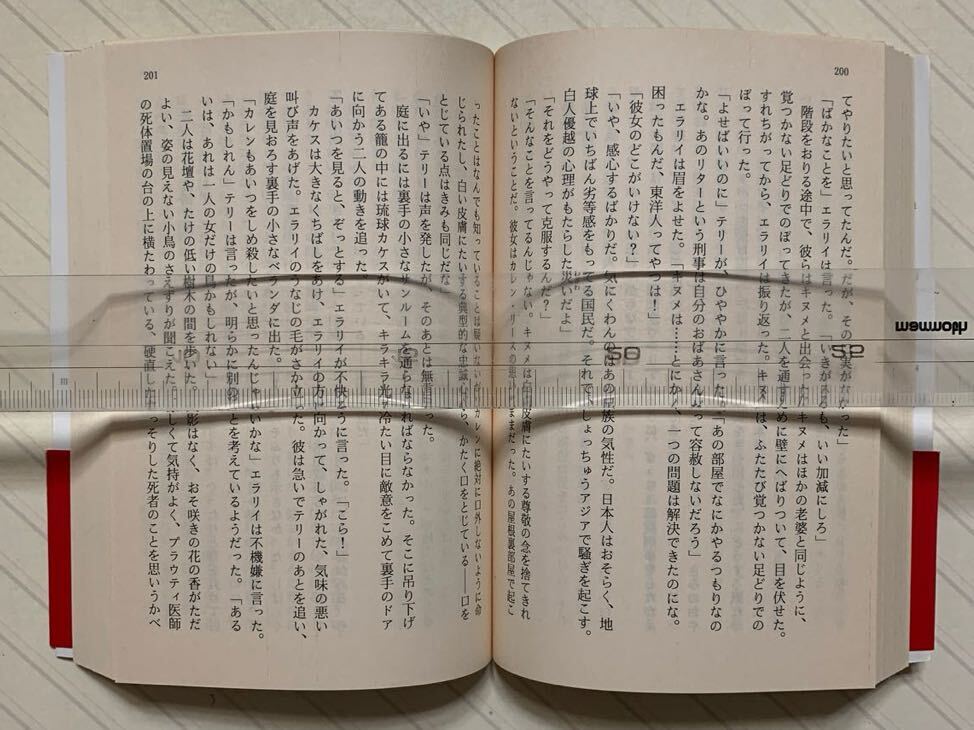 200
てやりたいと思ってたんだ。だが、その
「ばかなことを」エラリイは言った。「いきが
も、いい加減にしろ」
階段をおりる途中で、彼らはキヌメと出会った。キヌメはほかの老婆と同じように、
覚つかない足どりでのぼってきたが、二人を通すために壁にへばりついて、目を伏せた。
すれちがってから、エラリイは振り返った。キヌメは、ふたたび覚つかない足どりでの
ぼって行った。
「よせばいいのに」テリーが、ひややかに言った。「あの部屋でなにかやるつもりなの
かな。あのリターという刑事は自分のおばあさんだって容赦しないだろう」
エラリイは眉をよせた。「キヌメは……とにかく、一つの問題は解決できたのにな。
困ったもんだ、東洋人ってやつは！」
「彼女のどこがいけない？」
「いや、感心するばかりだ。気にくわんのはあの民族の気性だ。日本人はおそらく、地
球上でいちばん劣等感をもってる国民だ。それで、しょっちゅうアジアで騒ぎを起こす。
白人優越の心理がもたらした災いだよ」
「それをどうやって克服するんだ？」
「そんなことを言ってるんじゃない。キヌメは白い皮膚にたいする尊敬の念を捨てきれ
ないということだ。彼女はカレン・リースの思いのままだった。あの屋根裏部屋で起こ
201
ったことはなんでも知っていることは疑いないが、カレンに絶対に口外しないように命
じられたし、白い皮膚にたいする典型的な忠誠心から、かたく口をとじている――口を
とじている点はきみも同じだな」
「いや」テリーは声を発したが、そのあとは無言だった。
庭に出るには裏手の小さなサンルームを通らなければならなかった。そこに吊り下げ
てある籠の中には琉球カケスがいて、キラキラ光る冷たい目に敵意をこめて裏手のドア
に向かう二人の動きを追った。
「あいつを見ると、ぞっとする」エラリイが不快そうに言った。「こら！」
カケスは大きなくちばしをあけ、エラリイの方に向かって、しゃがれた、気味の悪い
叫び声をあげた。エラリイのうなじの毛がさか立った。彼は急いでテリーのあとを追い、
庭を見おろす裏手の小さなベランダに出た。
「カレンもあいつをしめ殺したいと思ったんじゃないかな」エラリイは不機嫌に言った。
「かもしれん」テリーは言ったが、明らかに別のことを考えているようだった。「ある
いは、あれは一人の女だけの鳥かもしれない」
二人は花壇や、たけの低い樹木の間を歩いた。
影はなく、おそ咲きの花の香がただ
よい、姿の見えない小鳥のさえずりが聞こえた。
しくて気持がよく、プラウティ医師
の死体置場の台の上に横たわっている、硬直した
っそりした死者のことを思いうかべ